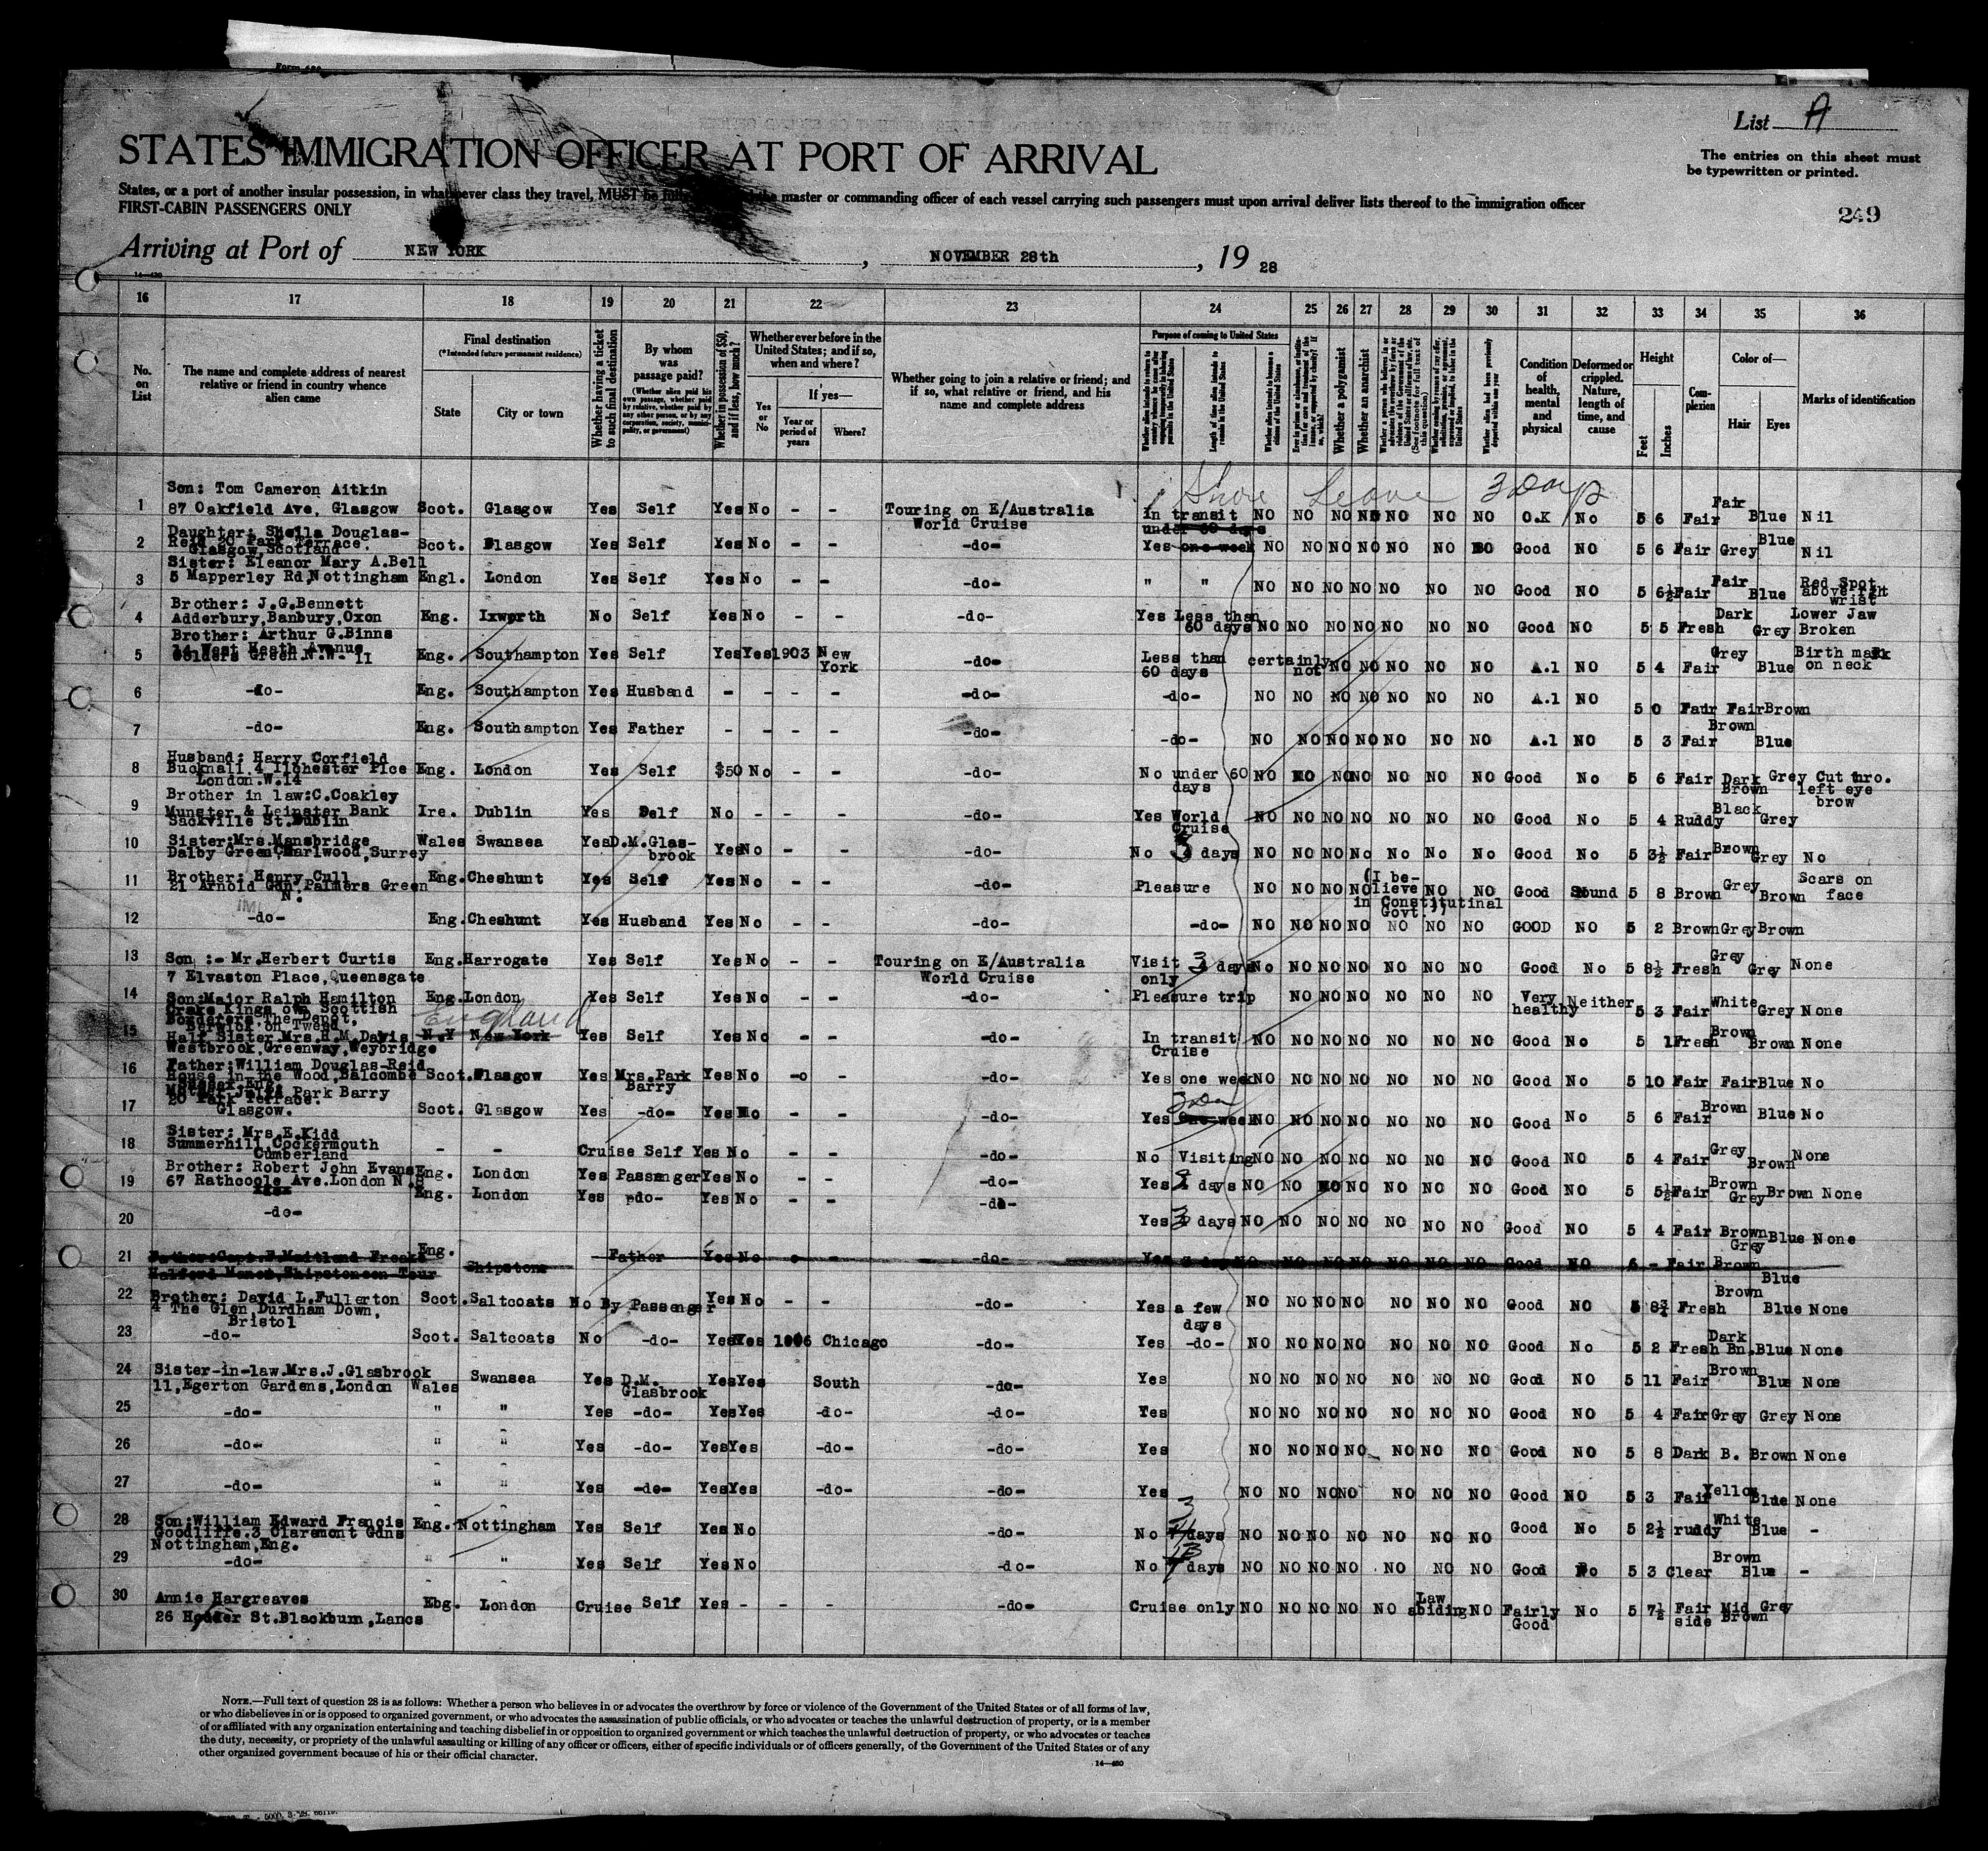 List A
STATES IMMIGRATION OFFICER AT PORT OF ARRIVAL
The entries on this sheet must
be typewritten or printed.
States, or a port of another insular possession, in whatsoever class they travel, MUST be master or commanding officer of each vessel carrying such passengers must upon arrival deliver lists thereof to the immigration officer
FIRST-CABIN PASSENGERS ONLY
249
Arriving at Port of NEW YORK, NOVEMBER 28th, 19 28
16 17 18 19 20 21 22 23 24 25 26 27 28 29 30 31 32 33 34 35 36
No. on List
The name and complete address of nearest relative or friend in country whence alien came
Final destination
(*Intended future permanent residence)
State
City or town
Whether having a ticket to such final destination
By whom was passage paid?
(Whether alien paid his own passage, whether paid by relative, whether paid by any other person, or by any corporation, society, municipality, or government)
Whether in possession of $50, and if less, how much?
Whether ever before in the United States; and if so, when and where?
Yes or No
If yes—
Year or period of years
Where?
Whether going to join a relative or friend; and if so, what relative or friend, and his name and complete address
Purpose of coming to United States
Length of time alien intends to remain in the United States
Whether a polygamist
Whether an anarchist
Condition of health, mental and physical
Deformed or crippled. Nature, length of time, and cause
Height
Feet
Inches
Complexion
Color of—
Hair
Eyes
Marks of identification
Shore Leave 3 Days
1 Son: Tom Cameron Aitkin 87 Oakfield Ave, Glasgow Scot. Glasgow Yes Self Yes No - - Touring on E/Australia World Cruise In transit under 60 days NO NO NO NO NO NO NO O.K No 5 6 Fair Fair Blue Nil
2 Daughter: Sheila Douglas-Reid 20 Park Terrace. Glasgow, Scotland Scot. Glasgow Yes Self Yes No - - -do- Yes one week NO NO NO NO NO NO NO Good NO 5 6 Fair Grey Blue Nil
3 Sister: Eleanor Mary A.Bell 5 Mapperley Rd, Nottingham Engl. London Yes Self Yes No - - -do- " " NO NO NO NO NO NO NO Good NO 5 6½ Fair Fair Blue Red Spot above rght wrist
4 Brother: J.G.Bennett Adderbury, Banbury, Oxon Eng. Ixworth No Self Yes No - - -do- Yes Less than 60 days NO NO NO NO NO NO NO Good NO 5 5 Fresh Dark Grey Lower Jaw Broken
5 Brother: Arthur G.Binns 14 West Heath Avenue Golders Green.N.W- 11 Eng. Southampton Yes Self Yes Yes 1903 New York -do- Less than 60 days certainly not NO NO NO NO NO A.1 NO 5 4 Fair Grey Blue Birth mark on neck
6 -do- Eng. Southampton Yes Husband - - - - -do- -do- NO NO NO NO NO NO NO A.1 NO 5 0 Fair Fair Brown
7 -do- Eng. Southampton Yes Father - - - - -do- -do- NO NO NO NO NO NO NO A.1 NO 5 3 Fair Brown Blue
8 Husband: Harry Corfield Bucknall 4 Ilchester Plce London.W.14 Eng. London Yes Self $50 No - - -do- No under 60 days NO NO NO NO NO NO NO Good No 5 6 Fair Dark Brown Grey Cut thro. left eye brow
9 Brother in law: C.Coakley Munster & Leinster Bank Sackville St.Dublin Ire. Dublin Yes Self No - - - -do- Yes World Cruise NO NO NO NO NO NO NO Good No 5 4 Ruddy Black Grey
10 Sister: Mrs.Mansbridge Dalby Green, Charlwood, Surrey Wales Swansea Yes D.M.Glas-brook Yes No - - -do- No 3 days NO NO NO No No No No Good No 5 3½ Fair Brown Grey No
11 Brother: Henry Cull 21 Arnold Gdn, Palmers Green N. Eng. Cheshunt Yes Self Yes No - - -do- Pleasure NO NO NO NO (I believe in Constitutinal Govt.) NO NO Good Sound 5 8 Brown Grey Brown Scars on face
12 -do- Eng. Cheshunt Yes Husband Yes No - - -do- -do- NO NO NO NO NO NO NO GOOD NO 5 2 Brown Grey Brown
13 Son :- Mr.Herbert Curtis 7 Elvaston Place, Queensgate Eng. Harrogate Yes Self Yes No - - Touring on E/Australia World Cruise Visit only 3 days No NO NO NO NO NO NO Good No 5 8½ Fresh Grey Grey None
14 Son: Major Ralph Hamilton Crake Kings own Scottish Borderers The Depot, Berwick on Tweed Eng. London Yes Self Yes No - - -do- Pleasure trip NO NO NO NO NO NO Very healthy Neither 5 3 Fair White Grey None
15 Half Sister Mrs.H.M.Davis Westbrook, Greenway, Weybridge N.Y New York England Yes Self Yes No - - -do- In transit Cruise NO NO NO NO NO NO NO Good No 5 1 Fresh Brown Brown None
16 Father: William Douglas-Reid House in the Wood, Balcombe Sussex.Eng. Scot. Glasgow Yes Mrs.Park Barry Yes No - - -do- Yes one week NO NO NO NO NO NO NO Good No 5 10 Fair Fair Blue No
17 Park Barry 20 Park Terrace. Glasgow. Scot. Glasgow Yes -do- Yes No - - -do- Yes One week NO NO NO NO NO NO NO Good No 5 6 Fair Brown Blue No
18 Sister: Mrs.E.Kidd Summerhill, Cockermouth Cumberland - - Cruise Self Yes No - - -do- No Visiting NO NO NO NO NO NO NO Good NO 5 4 Fair Grey Brown None
19 Brother: Robert John Evans 67 Rathcoole Ave. London N.8 Eng. London Yes Passenger Yes No - - -do- Yes days NO NO NO NO NO NO NO Good NO 5 5½ Fair Brown Grey Brown None
20 -do- Eng. London Yes -do- Yes No - - -do- Yes 3 days NO NO NO NO NO NO NO Good NO 5 4 Fair Brown Grey Blue None
21 Father: Capt.F.Maitland Freake Halford Manor, Shipston on Tour Eng. Shipstone Father Yes No - - -do- Yes 3 days NO NO NO NO NO NO NO Good NO 6 - Fair Brown Blue
22 Brother: David L.Fullerton 4 The Glen, Durdham Down, Bristol Scot. Saltcoats No By Passenger Yes No - - -do- Yes a few days NO NO NO NO NO NO NO Good NO 5 8¾ Fresh Brown Blue None
23 -do- Scot. Saltcoats No -do- Yes Yes 1906 Chicago -do- Yes -do- NO NO NO NO NO NO NO Good No 5 2 Fresh Dark Bn. Blue None
24 Sister-in-law.Mrs.J.Glasbrook 11, Egerton Gardens, London Wales Swansea Yes D.M. Glasbrook Yes Yes South -do- Yes NO NO NO NO NO NO NO Good NO 5 11 Fair Brown Blue None
25 -do- " " Yes -do- Yes Yes -do- -do- Yes NO NO NO NO NO NO NO Good NO 5 4 Fair Grey Grey None
26 -do- " " Yes -do- Yes Yes -do- -do- Yes NO NO NO NO NO NO NO Good NO 5 8 Dark B. Brown None
27 -do- " " Yes -do- Yes Yes -do- -do- Yes NO NO NO NO NO NO NO Good NO 5 3 Fair Yellow Blue None
28 Son: William Edward Francis Goodliffe.3 Claremont Gdns Nottingham, Eng. Eng. Nottingham Yes Self Yes No -do- No 3 days NO NO NO NO NO NO NO Good No 5 2½ ruddy White Blue -
29 -do- " " Yes Self Yes No -do- No 3 days NO NO NO NO NO NO NO Good No 5 3 Clear Brown Blue -
30 Annie Hargreaves 26 Hodder St.Blackburn, Lancs Ebg. London Cruise Self Yes - - - -do- Cruise only NO NO NO NO NO Law abiding NO Fairly Good No 5 7½ Fair side Mid Brown Grey
NOTE.—Full text of question 28 is as follows: Whether a person who believes in or advocates the overthrow by force or violence of the Government of the United States or of all forms of law,
or who disbelieves in or is opposed to organized government, or who advocates the assassination of public officials, or who advocates or teaches the unlawful destruction of property, or is a member
of or affiliated with any organization entertaining and teaching disbelief in or opposition to organized government or which teaches the unlawful destruction of property, or who advocates or teaches
the duty, necessity, or propriety of the unlawful assaulting or killing of any officer or officers, either of specific individuals or of officers generally, of the Government of the United States or of any
other organized government because of his or their official character.
14—430